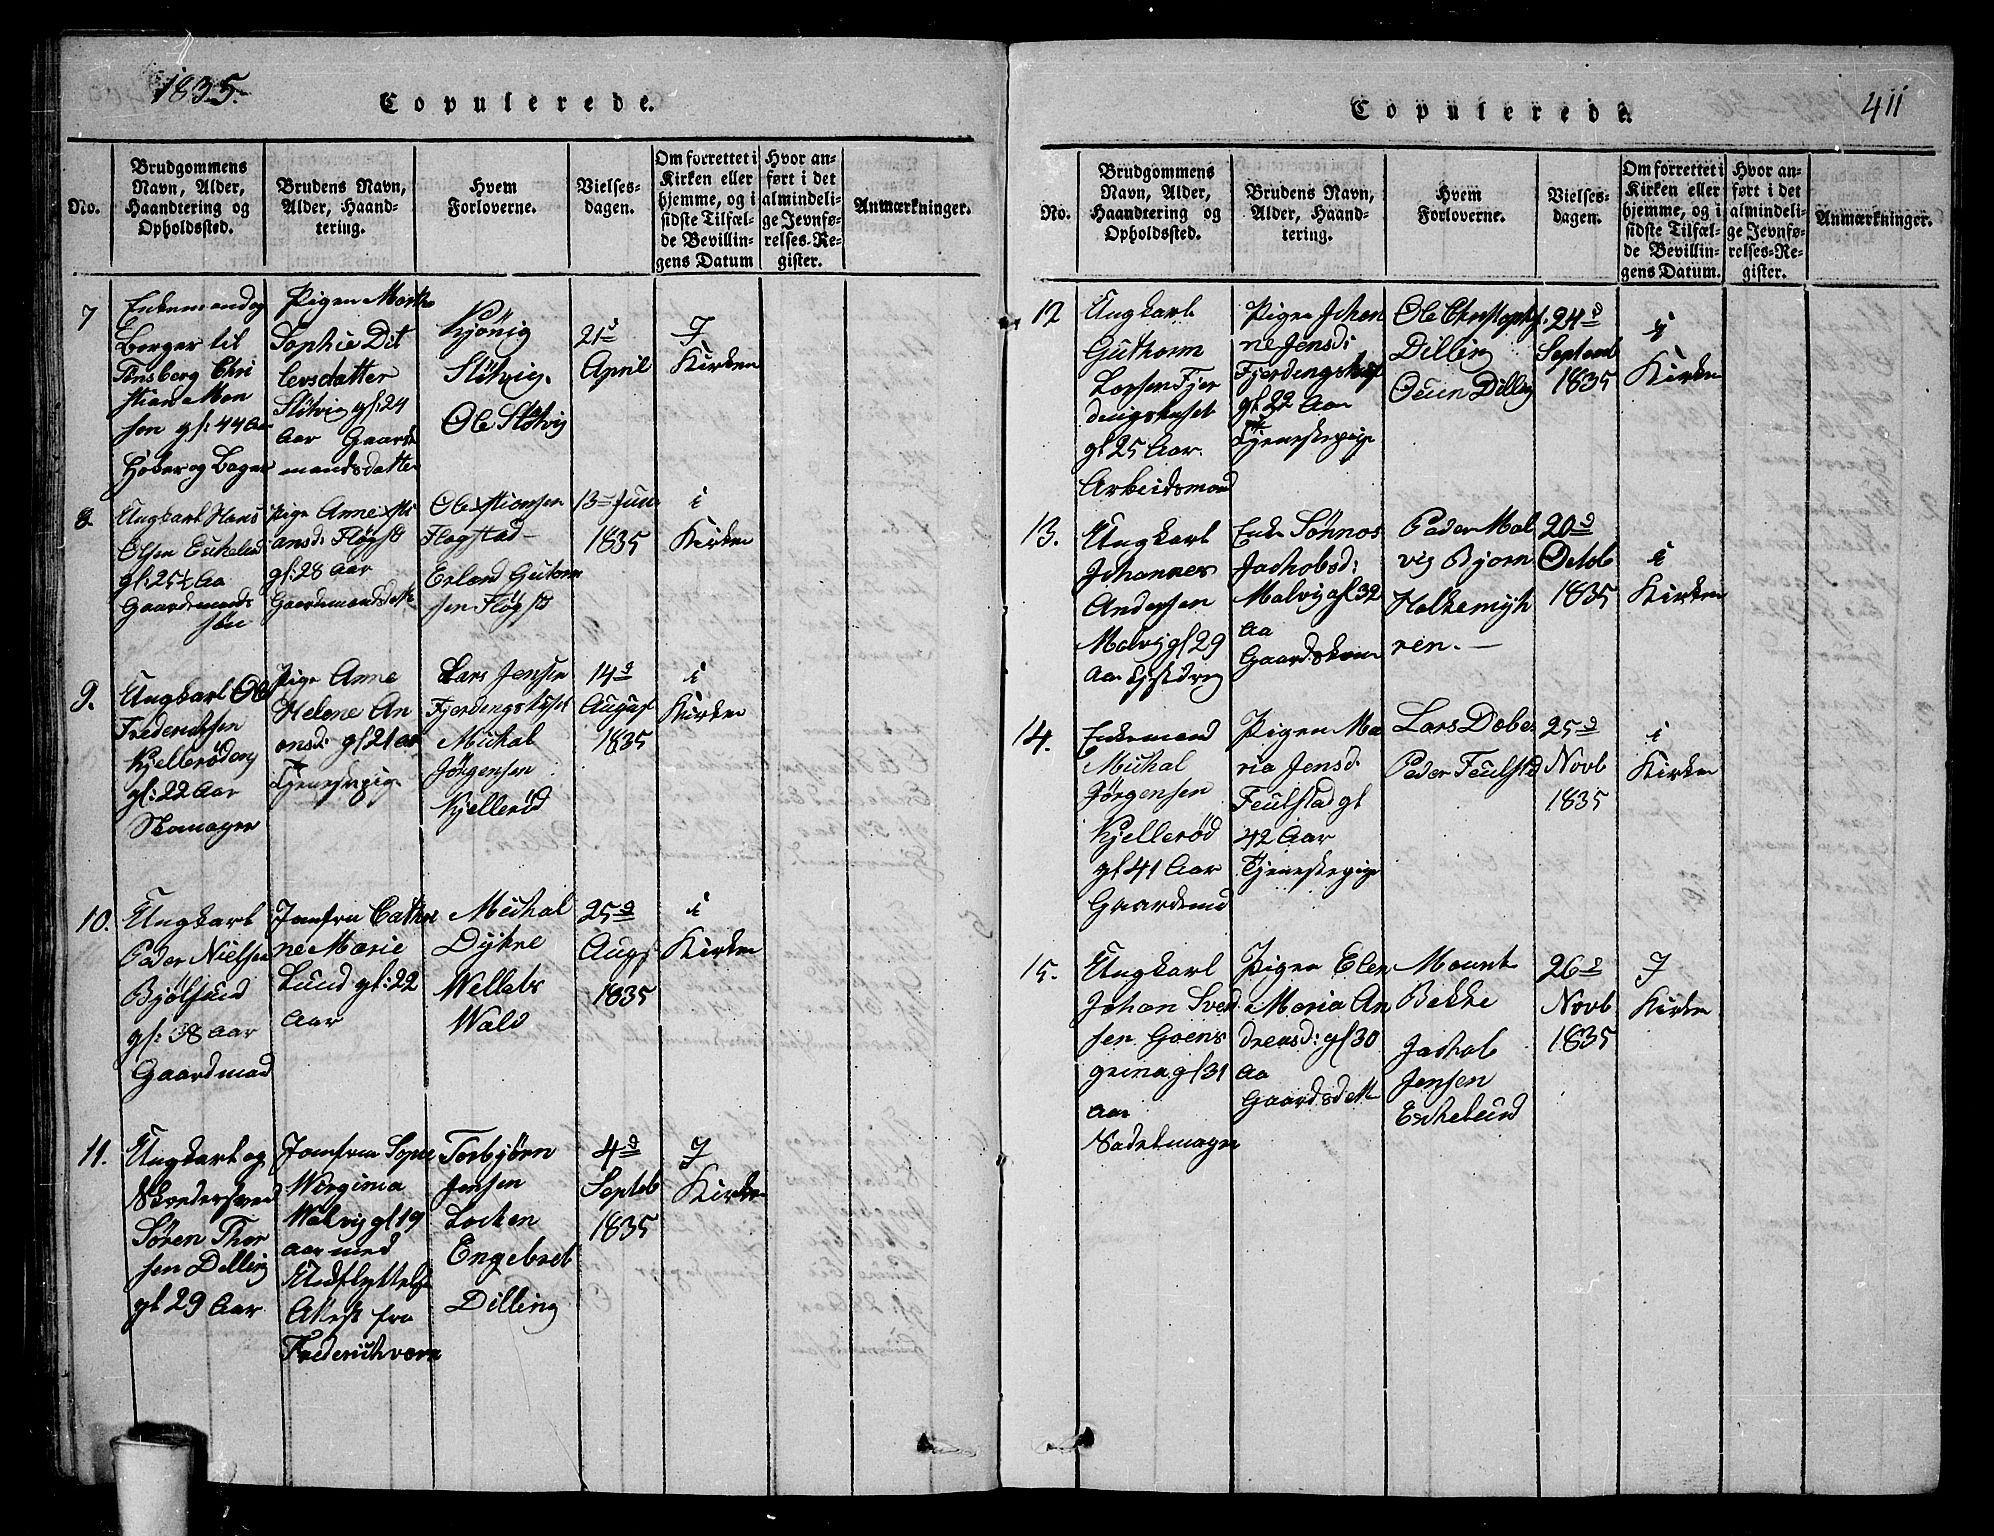 1835.
Copulerede.
No.
Brudgommens
Navn, Alder,
Haandtering og
Opholdssted.
Brudens Navn,
Alder, Haand-
tering.
Hvem
Forloverne.
Vielses-
dagen.
Om forrettet i
Kirken eller
hjemme, og i
sidste Tilfæl-
de Bevillin-
gens Datum
Hvor an-
ført i det
almindeli-
ge Jevnfø-
relses-Re-
gister.
Anmærkninger.
7
Enkemand og
Borger til
Tønsberg Chri
stian Mon
sen gl: 44 Aar
Pigen
Sophie Dit
levsdatter
Støtvig gl: 24
Aar Gaard
mandsdatter
Kjønig
Støtvig.
Ole Støtvig
21d
April
I
Kirken
8.
Ungkarl Hans
Olsen Eskelund
gl: 25½ Aa
Gaardmands
søn
Pige Anne
ansd: Fløgst
gl: 28 Aar
Gaardmandsdatt
Ole Stiansen
Flogstad
Erland Gutorm
sen Fløgst
13 Juni
1835
i
Kirken
9.
Ungkarl Ole
Frederichsen
Kjellerød
gl: 22 Aar
Skomager
Pige Anne
Helene An
onsd: gl 21 aar
Tjenestepige
Lars Jensen
Fjerdingshuset
Michal
Jørgensen
Kjellerød
14d
August
1835
i
Kirken
10.
Ungkarl
Peder Nielsen
Bjølsund
gl: 38 Aar
Gaardmand
Jomfru Cathri
ne Marie
Lund gl: 22
Aar
Michal
Dyhre
Wellebs
Wald
25d
Augs
1835
i
Kirken
11.
Ungkarl og
Søren Thor
sen Dilling
gl 29 Aar
Jomfru
Wirginia
Walvig gl 19
aar med
Udflyttelse
Attest fra
Frederichværn
Torbjørn
Jensen
Locken
Engebret
Dilling
4d
Septeb
1835
I
Kirken
Copulerede.
411
No.
Brudgommens
Navn, Alder,
Haandtering og
Opholdssted.
Brudens Navn,
Alder, Haand-
tering.
Hvem
Forloverne.
Vielses-
dagen.
Om forrettet i
Kirken eller
hjemme, og i
sidste Tilfæl-
de Bevillin-
gens Datum.
Hvor an-
ført i det
almindeli-
ge Jevnfø-
relses-Re-
gister.
Anmærkninger.
12
Ungkarl
Guthorm
Larsen Fjer
dingshuset
gl 25 Aar.
Arbeidsmand
Pigen Johan
ne Jensd:
Fjerdingshuset
gl 22 Aar
Tjenestepige
Ole Christophs.
Dilling
Dilling
24d
Septemb
1835
i
Kirken
13.
Ungkarl
Johannes
Andersen
Malvig gl 29
Aar
Enke Sønnøs
Jachobsd:
Malvig gl 32
Aa
Gaardskone
Peder Mal
vig Bjorn
Holkemyh
ren.
20d
Octob
1835
i
Kirken
14.
Enkemand
Michal
Jørgensen
Kjellerød
gl 41 Aar
Gaardmand
Pigen Ma
ria Jensd.
Feulstad gl
42 Aar
Tjenestepige
Lars Dober
Peder Feulstd
25d
Novb
1835
i
Kirken
15.
Ungkarl
Johan Svend
sen Goens
greina gl 31
Aar
Sadelmager
Pigen Elen
Maria An
drensd: gl 30
Aa
Gaardsdatt
Bakke
Jachob
Jensen
Eschelund
26d
Novb
1835
I
Kirken